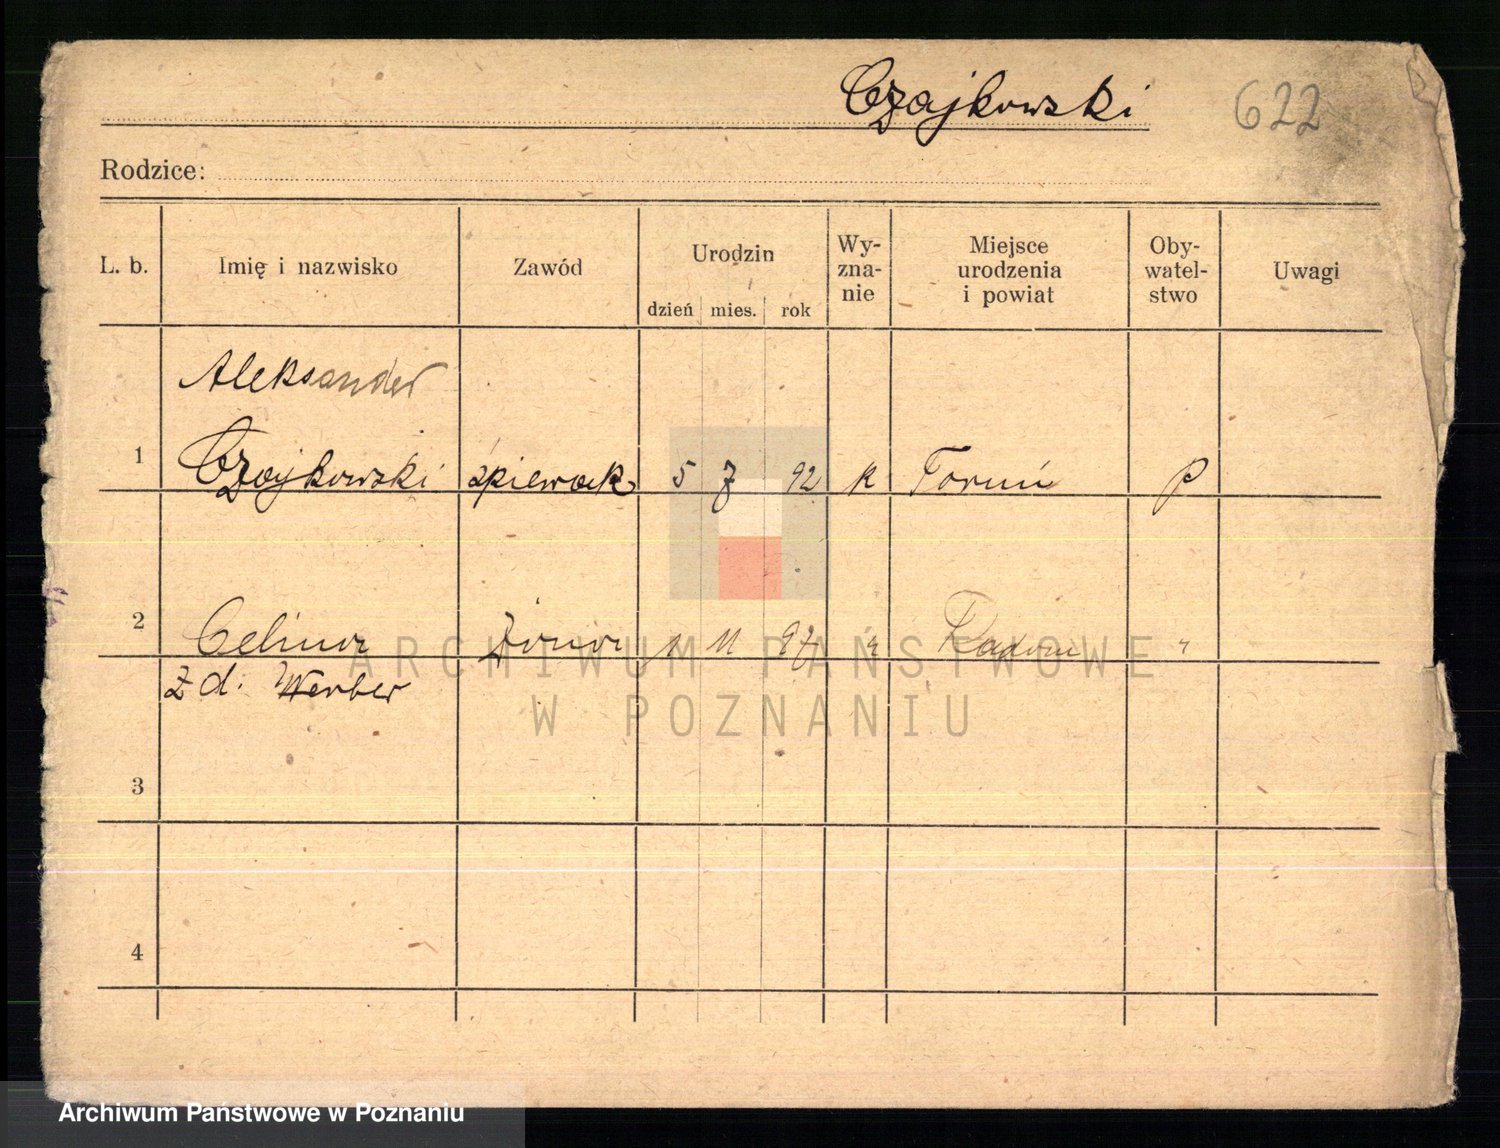 Czajkowski 622
Rodzice:
L. b. Imię i nazwisko Zawód Urodzin dzień mies. rok Wy- zna- nie Miejsce urodzenia i powiat Oby- watel- stwo Uwagi
Aleksander
1 Czajkowski śpiewak 5 7 92 k Toruń P
2 Celina żona 1 11 97 " Radom "
z d. Werber
3
4
ARCHIWUM PAŃSTWOWE
W POZNANIU
Archiwum Państwowe w Poznaniu